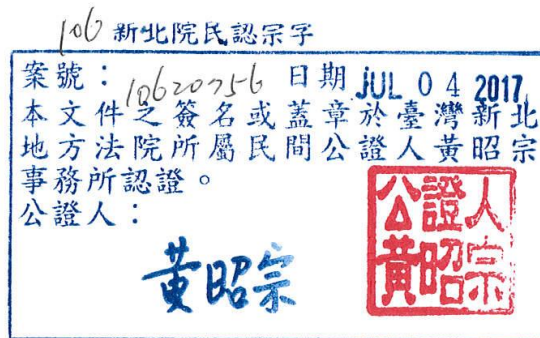 106 新北院民認宗字
案號：10620756 日期 JUL 04 2017
本文件之簽名或蓋章於臺灣新北
地方法院所屬民間公證人黃昭宗
事務所認證。
公證人：
黃昭宗
公證人
黃昭宗